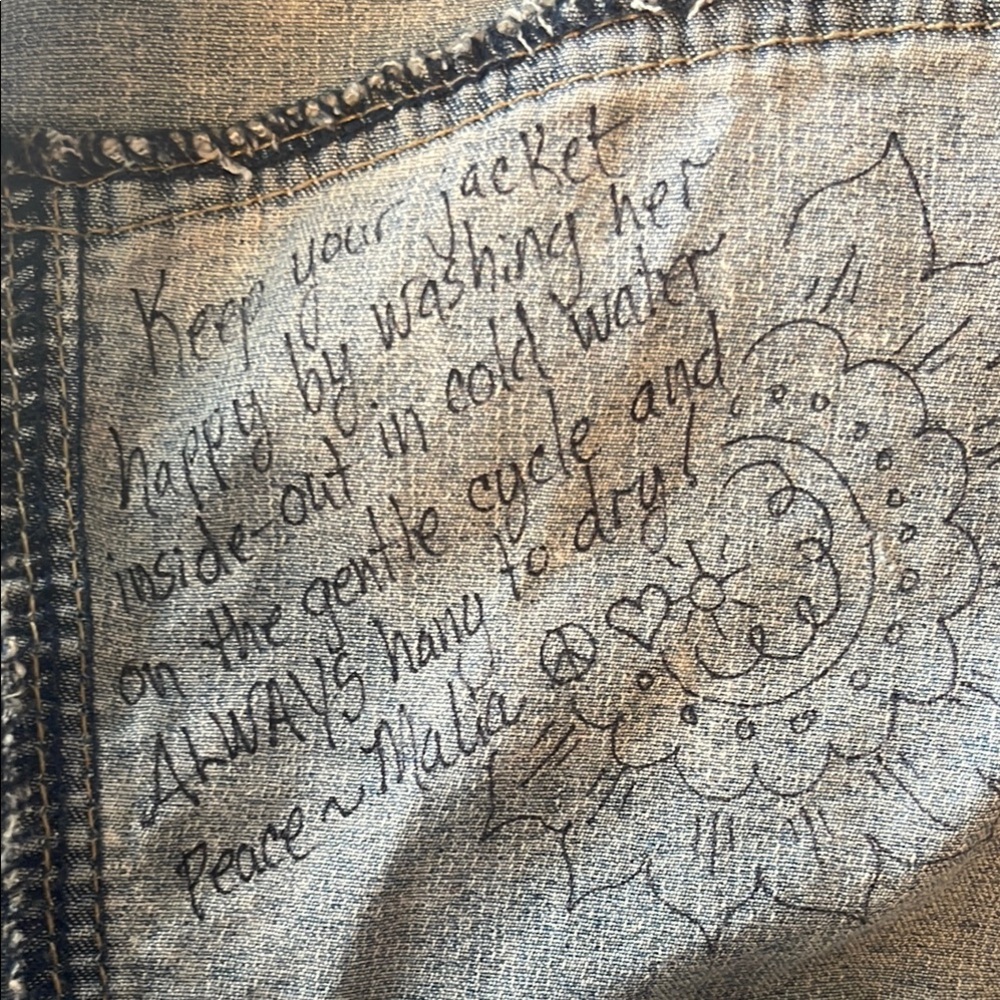 Keep your jacket
happy by washing her
inside-out in cold water
on the gentle cycle and
ALWAYS hang to dry!
Peace ~ Malia